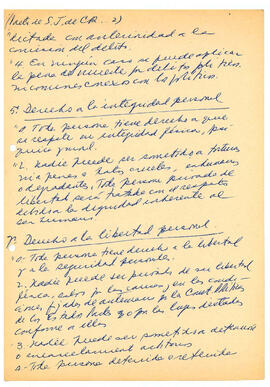 (Pacto de S.J. de C.R. 2)
dictada con anterioridad a la
comisión del delito.
"4. En ningún caso se puede aplicar
la pena de muerte por delitos políticos
ni comunes conexos con los políticos.
5º Derecho a la integridad personal
"1. Toda persona tiene derecho a que
se respete su integridad física, psí
quica y moral.
"2. Nadie puede ser sometido a torturas
ni a penas o tratos crueles, inhumanos
o degradantes. Toda persona privada de
libertad será tratada con el respeto
debido a la dignidad inherente al
ser humano"
7º Derecho a la libertad personal
Toda persona tiene derecho a la libertad
y a la seguridad personales.
2. Nadie puede ser privado de su libertad
física, salvo por las causas y en las condi
ciones fijadas de antemano por la Const. Políticas
de los Estados Partes o por las leyes dictadas
conforme a ellas
3. Nadie puede ser sometido a detención
o encarcelamiento arbitrarios
4- Toda persona detenida o retenida